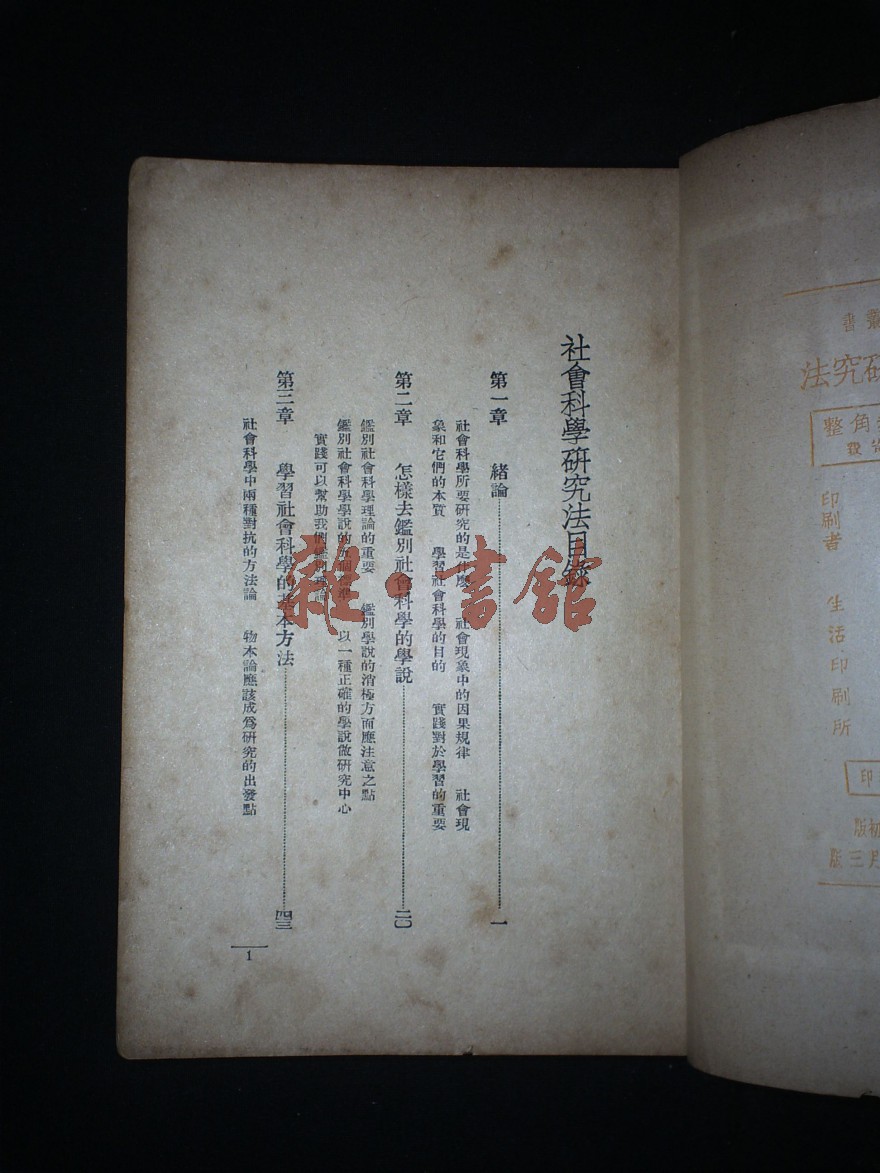 社會科學研究法目錄
第一章 緒論 一
社會科學所要研究的是什麼 社會現象中的因果規律 社會現
象和它們的本質 學習社會科學的目的 實踐對於學習的重要
第二章 怎樣去鑑別社會科學的學說 二〇
鑑別社會科學理論的重要 鑑別學說的消極方面應注意之點
鑑別社會科學學說的 以一種正確的學說做研究中心
實踐可以幫助我們鑑別理論
第三章 學習社會科學的基本方法 四三
社會科學中兩種對抗的方法論 物本論應該成爲研究的出發點
1
雜·書館
叢書
研究法
角整
印刷者 生活印刷所
印
初版
月三版